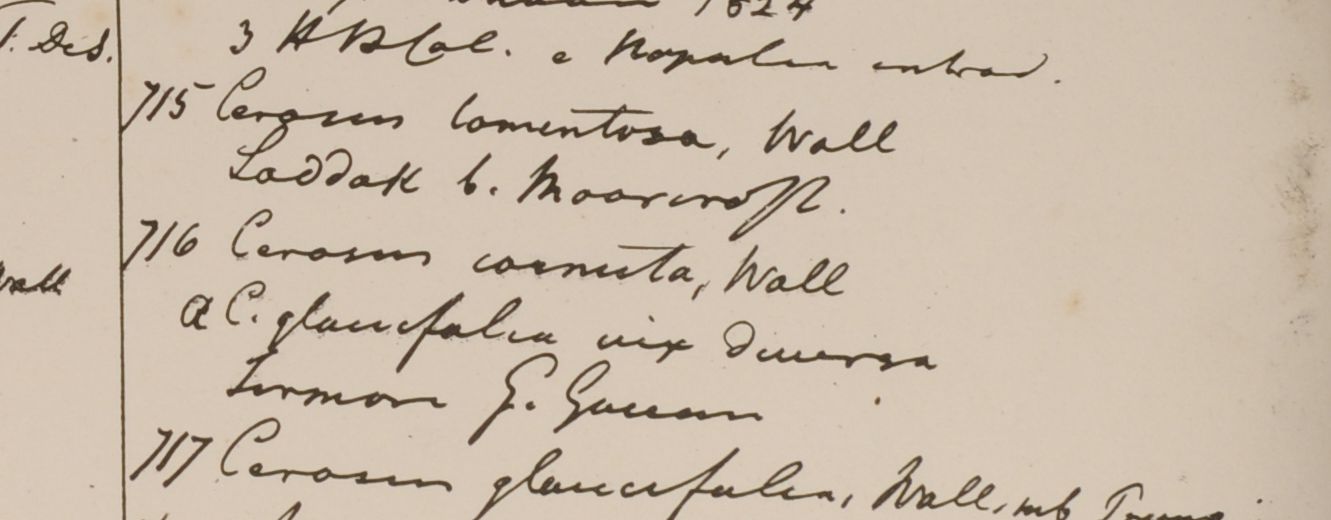 1824
T. Des.
3 HBCal. e Napalia introd.
715 Cerasus tomentosa, Wall
Laddak b. Moorcroft.
716 Cerasus cornuta, Wall
Wall
a C. glaucifolia vix diversa
Sirmore G. Govan
717 Cerasus glaucifolia, Wall, sub